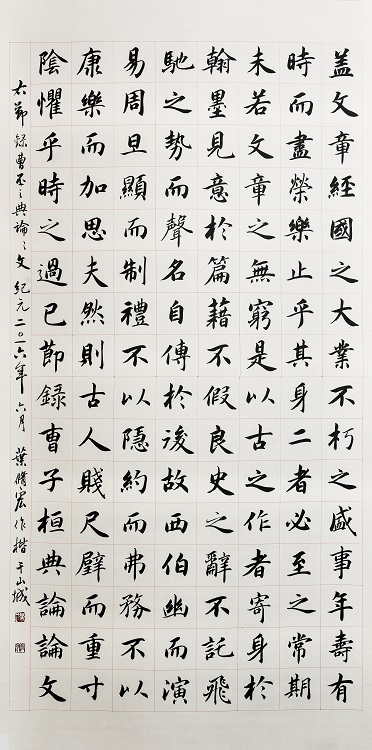 盖文章經國之大業不朽之盛事年壽有
時而盡榮樂止乎其身二者必至之常期
未若文章之無窮是以古之作者寄身於
翰墨見意於篇藉不假良史之辭不託飛
馳之勢而聲名自傳於後故西伯幽而演
易周旦顯而制禮不以隱約而弗務不以
康樂而加思夫然則古人賤尺璧而重寸
陰懼乎時之過已節録曹子桓典論論文
右節録曹丕之典論之文 紀元二〇一六年六月 葉宏作楷于山城